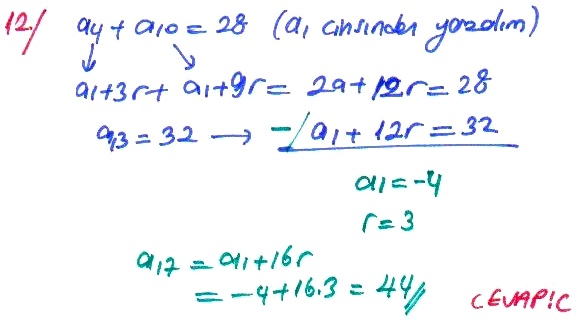 12/ a4 + a10 = 28 (a1 cinsinden yazalım)
a1+3r + a1+9r = 2a+12r = 28
a13 = 32 → -/ a1 + 12r = 32
a1 = -4
r = 3
a17 = a1+16r
= -4+16.3 = 44//
CEVAP:C